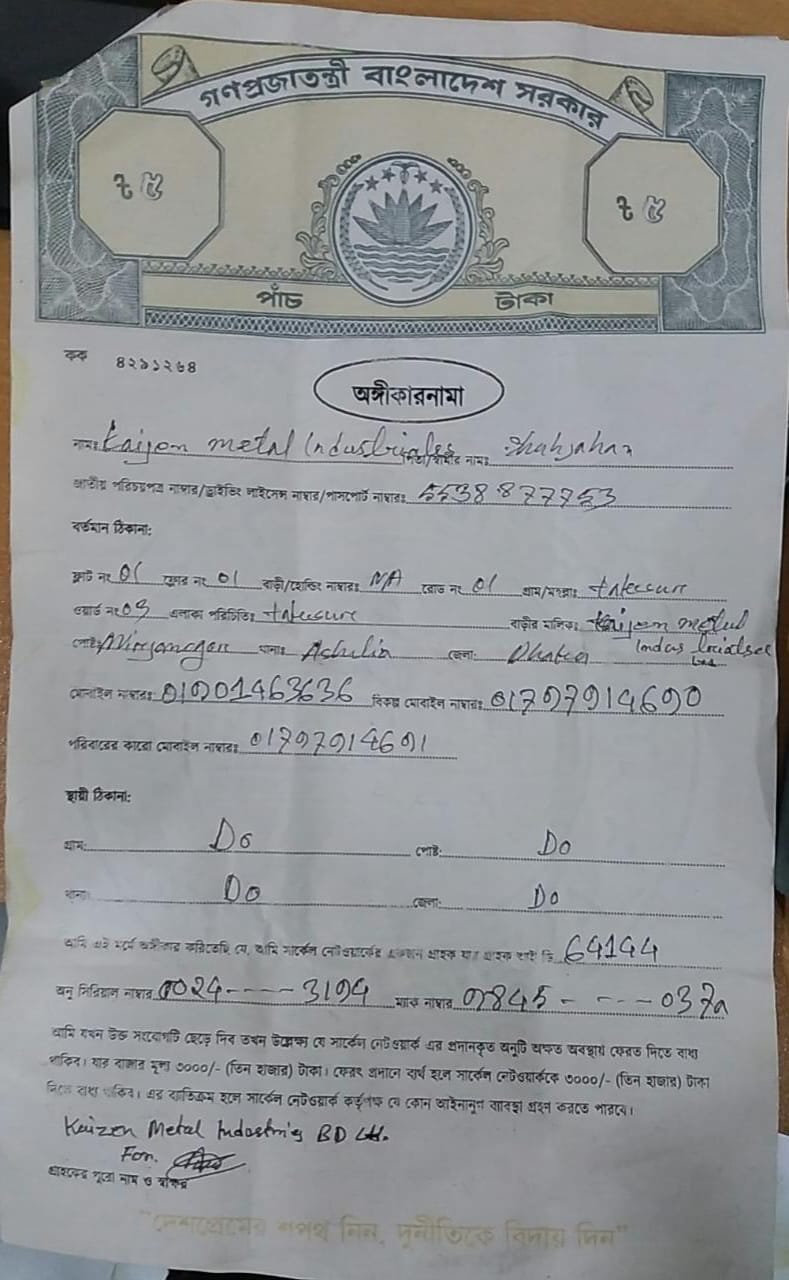 গণপ্রজাতন্ত্রী বাংলাদেশ সরকার
৳ ৫
৳ ৫
পাঁচ টাকা
কক ৪২৯১২৬৪
অঙ্গীকারনামা
নামঃ Kaijen metal Industriales পিতা/স্বামীর নামঃ Shahjahan
জাতীয় পরিচয়পত্র নাম্বার/ড্রাইভিং লাইসেন্স নাম্বার/পাসপোর্ট নাম্বারঃ 5538877753
বর্তমান ঠিকানা:
ফ্লাট নং 01 ফ্লোর নং 01 বাড়ী/হোল্ডিং নাম্বারঃ NA রোড নং 01 গ্রাম/মহল্লাঃ
ওয়ার্ড নং 03 এলাকা পরিচিতিঃ বাড়ীর মালিকঃ Kaijen metal
পোষ্টঃ থানাঃ Ashulia জেলা: Dhaka
মোবাইল নাম্বারঃ 01901463636 বিকল্প মোবাইল নাম্বারঃ 01797914690
পরিবারের কারো মোবাইল নাম্বারঃ 01797914691
স্থায়ী ঠিকানা:
গ্রাম: Do পোষ্ট: Do
থানা: Do জেলা: Do
আমি এই মর্মে অঙ্গীকার করিতেছি যে, আমি সার্কেল নেটওয়ার্কের একজন গ্রাহক যার গ্রাহক আই ডি 64144
অনু সিরিয়াল নাম্বার 0024----3194 ম্যাক নাম্বার 9845- ---037a
আমি যখন উক্ত সংযোগটি ছেড়ে দিব তখন উল্লেক্ষ্য যে সার্কেল নেটওয়ার্ক এর প্রদানকৃত অনুটি অক্ষত অবস্থায় ফেরত দিতে বাধ্য
থাকিব। যার বাজার মূল্য ৩০০০/- (তিন হাজার) টাকা। ফেরৎ প্রদানে ব্যর্থ হলে সার্কেল নেটওয়ার্ককে ৩০০০/- (তিন হাজার) টাকা
দিতে বাধ্য থাকিব। এর ব্যতিক্রম হলে সার্কেল নেটওয়ার্ক কর্তৃপক্ষ যে কোন আইনানুগ ব্যাবস্থা গ্রহন করতে পারবে।
Kaizen Metal Industris BD Ltd.
For.
গ্রাহকের পুরো নাম ও স্বাক্ষর
"দেশপ্রেমের শপথ নিন, দুর্নীতিকে বিদায় দিন"